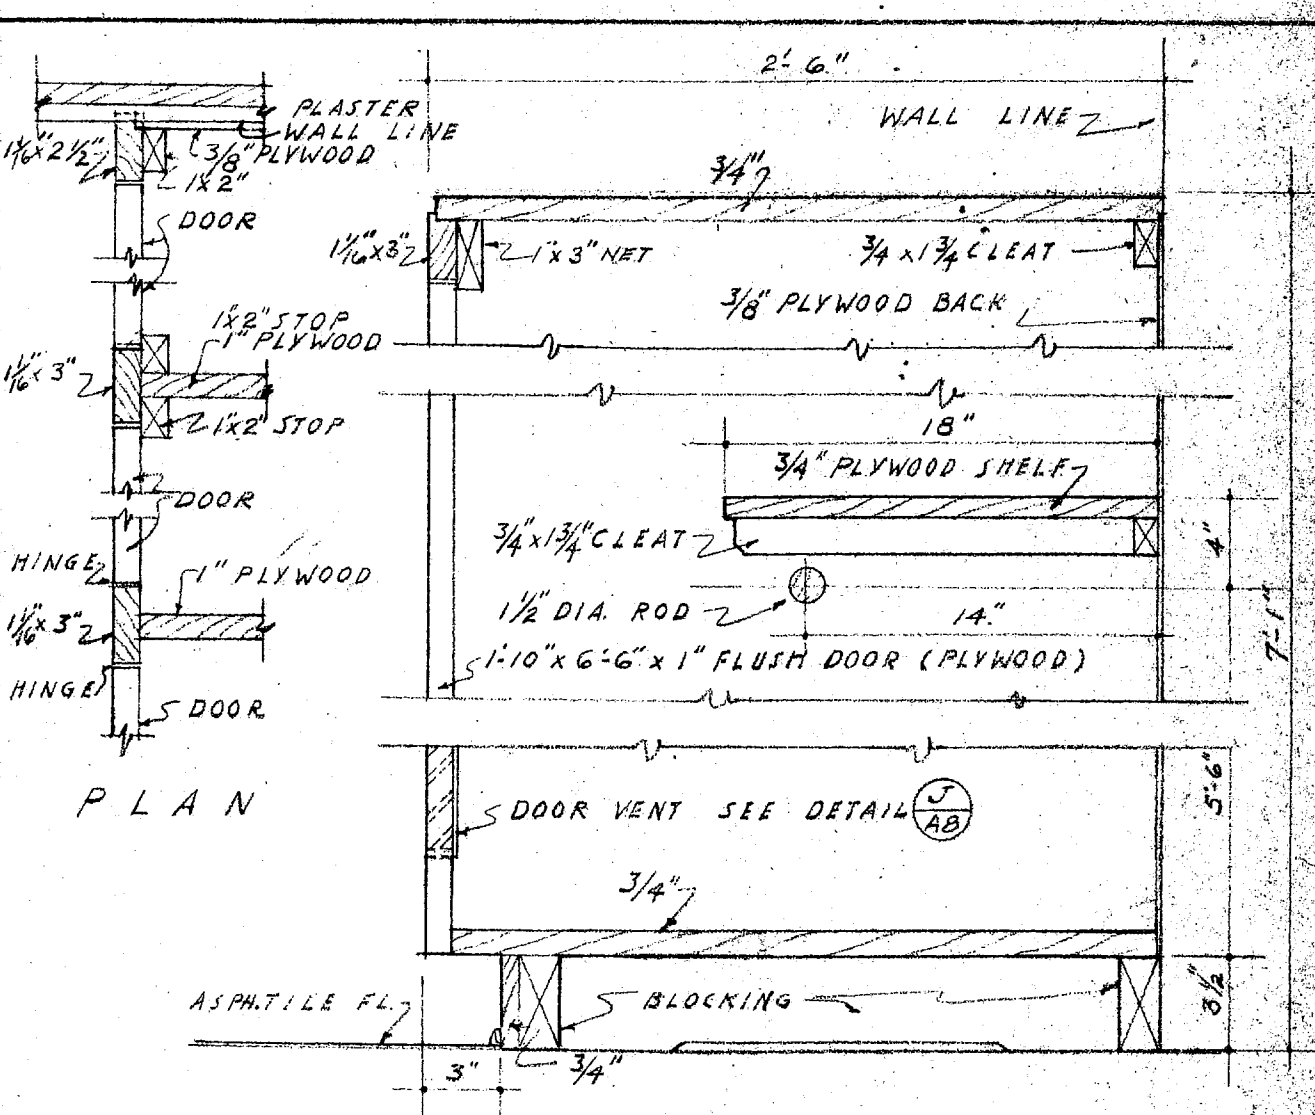 PLASTER
WALL LINE
3/8" PLYWOOD
1 1/16" x 2 1/2"
1 x 2"
DOOR
1"x2" STOP
1" PLYWOOD
1 1/16" x 3"
1"x2" STOP
DOOR
HINGE
1" PLYWOOD
1 1/16" x 3"
HINGE
DOOR
PLAN
2'-6"
WALL LINE
3/4"
1 1/16" x 3"
1"x3" NET
3/4 x 1 3/4 CLEAT
3/8" PLYWOOD BACK
18"
3/4" PLYWOOD SHELF
3/4" x 1 3/4" CLEAT
4"
1 1/2" DIA. ROD
14"
7'-1"
1'-10" x 6'-6" x 1" FLUSH DOOR (PLYWOOD)
5'-6"
DOOR VENT SEE DETAIL J
A8
3/4"
ASPH.TILE FL.
BLOCKING
3"
3/4"